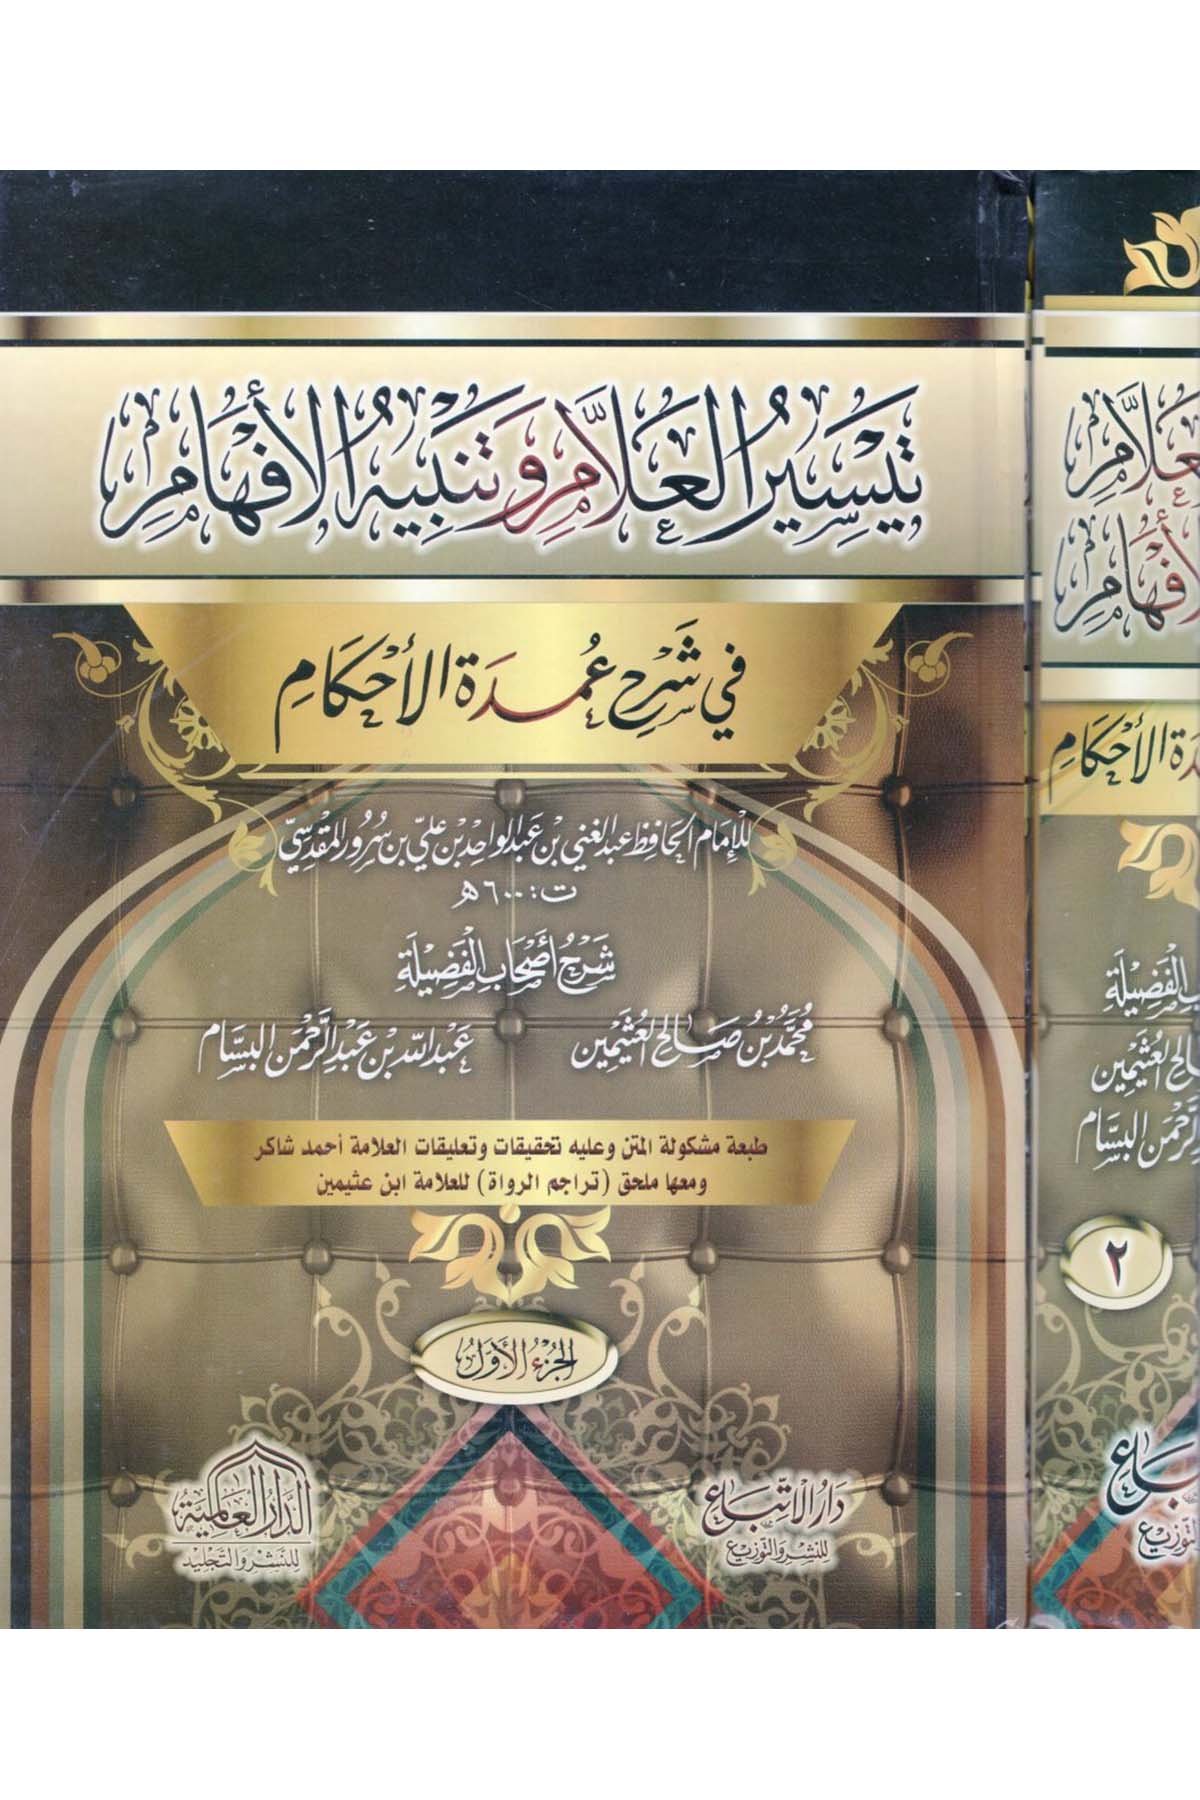 تَيسِيرُ العَلَّامِ وَتَنبِيهُ الأَفْهَامِ
فِي شَرْحِ عُمدَةِ الأَحْكَامِ
للإمام الحَافِظ عَبد الغَني بن عَبد الواحِد بن عَليّ بن سُرُور المقدِسِيّ
ت : ٦٠٠ هـ
شَرْحُ أَصْحَابِ الفَضِيلَةِ
مُحَمَّد بْن صَالِح العُثَيْمِين
عَبْد اللَّه بْن عَبْد الرَّحْمَن البسَّام
طبعة مشكولة المتن وعليه تحقيقات وتعليقات العلامة أحمد شاكر
ومعها ملحق (تراجم الرواة) للعلامة ابن عثيمين
الجُزْءُ الأَوَّلُ
دَارُ الاتِّبَاعِ
للنشر والتوزيع
الدَّارُ العَالَمِيَّة
للنشر والتجليد
علَّامِ
لأَفْهَامِ
دَةِ الأَحْكَامِ
ب الفَضِيلَةِ
الِح العُثَيْمِين
رَّحْمَن البسَّام
٢
بَاعِ
التوزيع